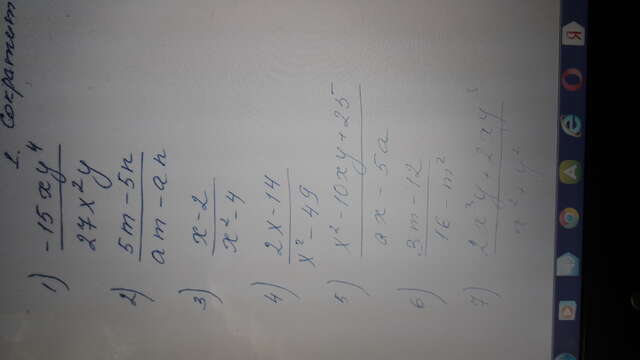 1. Сократит
1) -15xy⁴ / 27x²y
2) 5m-5n / am-an
3) x-2 / x²-4
4) 2x-14 / x²-49
5) x²-10xy+25 / ax-5a
6) 3m-12 / 16-m²
7) 2x³y+2xy³ / x²+y²
Я